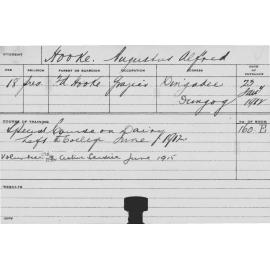 STUDENT Hooke. Augustus Alfred
AGE RELIGION PARENT OR GUARDIAN OCCUPATION ADDRESS DATE OF ENTRANCE
18 Pres. Fd Hooke Grazier Dingadee 23
Dungog Jany
1912
COURSE OF TRAINING No. OF ROOM
Special Course on Dairy 160. B
Left College June / 1912
Volunteered Active Service June 1915
RESULTS